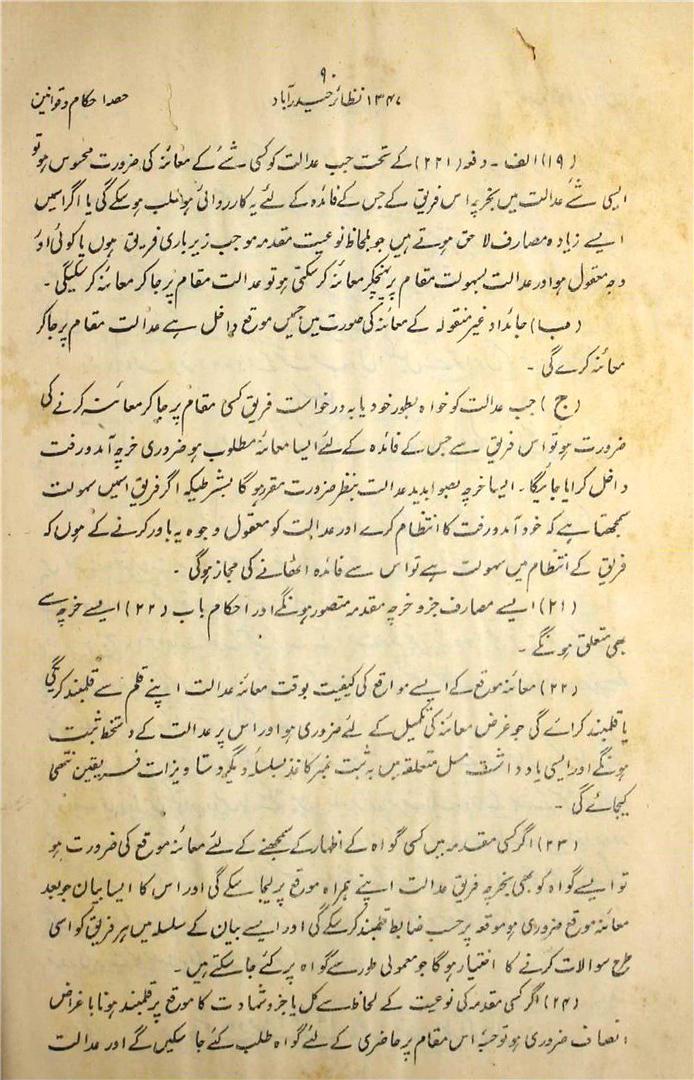 ۹۰
۱۳۴۷ نظائر حیدرآباد
حصہ احکام و قوانین
(۱۹) الف ۔ دفعہ (۲۲۱) کے تحت جب عدالت کو کسی شئے کے معائنہ کی ضرورت محسوس ہو تو
ایسی شئے عدالت میں بخرچہ اس فریق کے جس کے فائدہ کے لئے یہ کارروائی ہو طلب ہوسکے گی یا اگر اسمیں
ایسے زیادہ مصارف لاحق ہوتے ہیں جو بلحاظ نوعیت مقدمہ موجب زیر باری فریق ہوں یا کوئی اور
وجہ معقول ہو اور عدالت بسہولت مقام پر پہنچکر معائنہ کرسکتی ہو تو عدالت مقام پر جاکر معائنہ کرسکیگی ۔
(ب) جائداد غیر منقولہ کے معائنہ کی صورت میں جسمیں موقع داخل ہے عدالت مقام پر جاکر
معائنہ کرے گی ۔
(ج) جب عدالت کو خواہ بطور خود یا بہ درخواست فریق کسی مقام پر جاکر معائنہ کرنے کی
ضرورت ہو تو اس فریق سے جس کے فائدہ کے لئے ایسا معائنہ مطلوب ہو ضروری خرچہ آمد و رفت
داخل کرایا جائیگا ۔ ایسا خرچہ بصوابدید عدالت بنظر ضرورت مقرر ہوگا بشرطیکہ اگر فریق اسمیں سہولت
سمجھتا ہے کہ خود آمد و رفت کا انتظام کرے اور عدالت کو معقول وجوہ یہ باور کرنے کے ہوں کہ
فریق کے انتظام میں سہولت ہے تو اس سے فائدہ اٹھانے کی مجاز ہوگی ۔
(۲۱) ایسے مصارف جزو خرچہ مقدمہ متصور ہونگے اور احکام باب (۲۲) ایسے خرچہ سے
بھی متعلق ہونگے ۔
(۲۲) معائنہ موقع کے ایسے مواقع کی کیفیت بوقت معائنہ عدالت اپنے قلم سے قلمبند کریگی
یا قلمبند کرائے گی جو غرض معائنہ کی تکمیل کے لئے ضروری ہو اور اس پر عدالت کے دستخط ثبت
ہونگے اور ایسی یادداشت مسل متعلقہ میں بہ ثبت نمبر کاغذ بسلسلہ دیگر دستاویزات فریقین نتھی
کیجائے گی ۔
(۲۳) اگر کسی مقدمہ میں کسی گواہ کے اظہار کے سمجھنے کے لئے معائنہ موقع کی ضرورت ہو
تو ایسے گواہ کو بھی بخرچہ فریق عدالت اپنے ہمراہ موقع پر لیجا سکے گی اور اس کا ایسا بیان جو بعد
معائنہ موقع ضروری ہو موقعہ پر حسب ضابطہ قلمبند کرسکے گی اور ایسے بیان کے سلسلہ میں ہر فریق کو اسی
طرح سوالات کرنے کا اختیار ہوگا جو معمولی طور سے گواہ پر کئے جاسکتے ہیں ۔
(۲۴) اگر کسی مقدمہ کی نوعیت کے لحاظ سے کل یا جزو شہادت کا موقع پر قلمبند ہونا باغراض
انصاف ضروری ہو تو اس مقام پر حاضری کے لئے گواہ طلب کئے جاسکیں گے اور عدالت